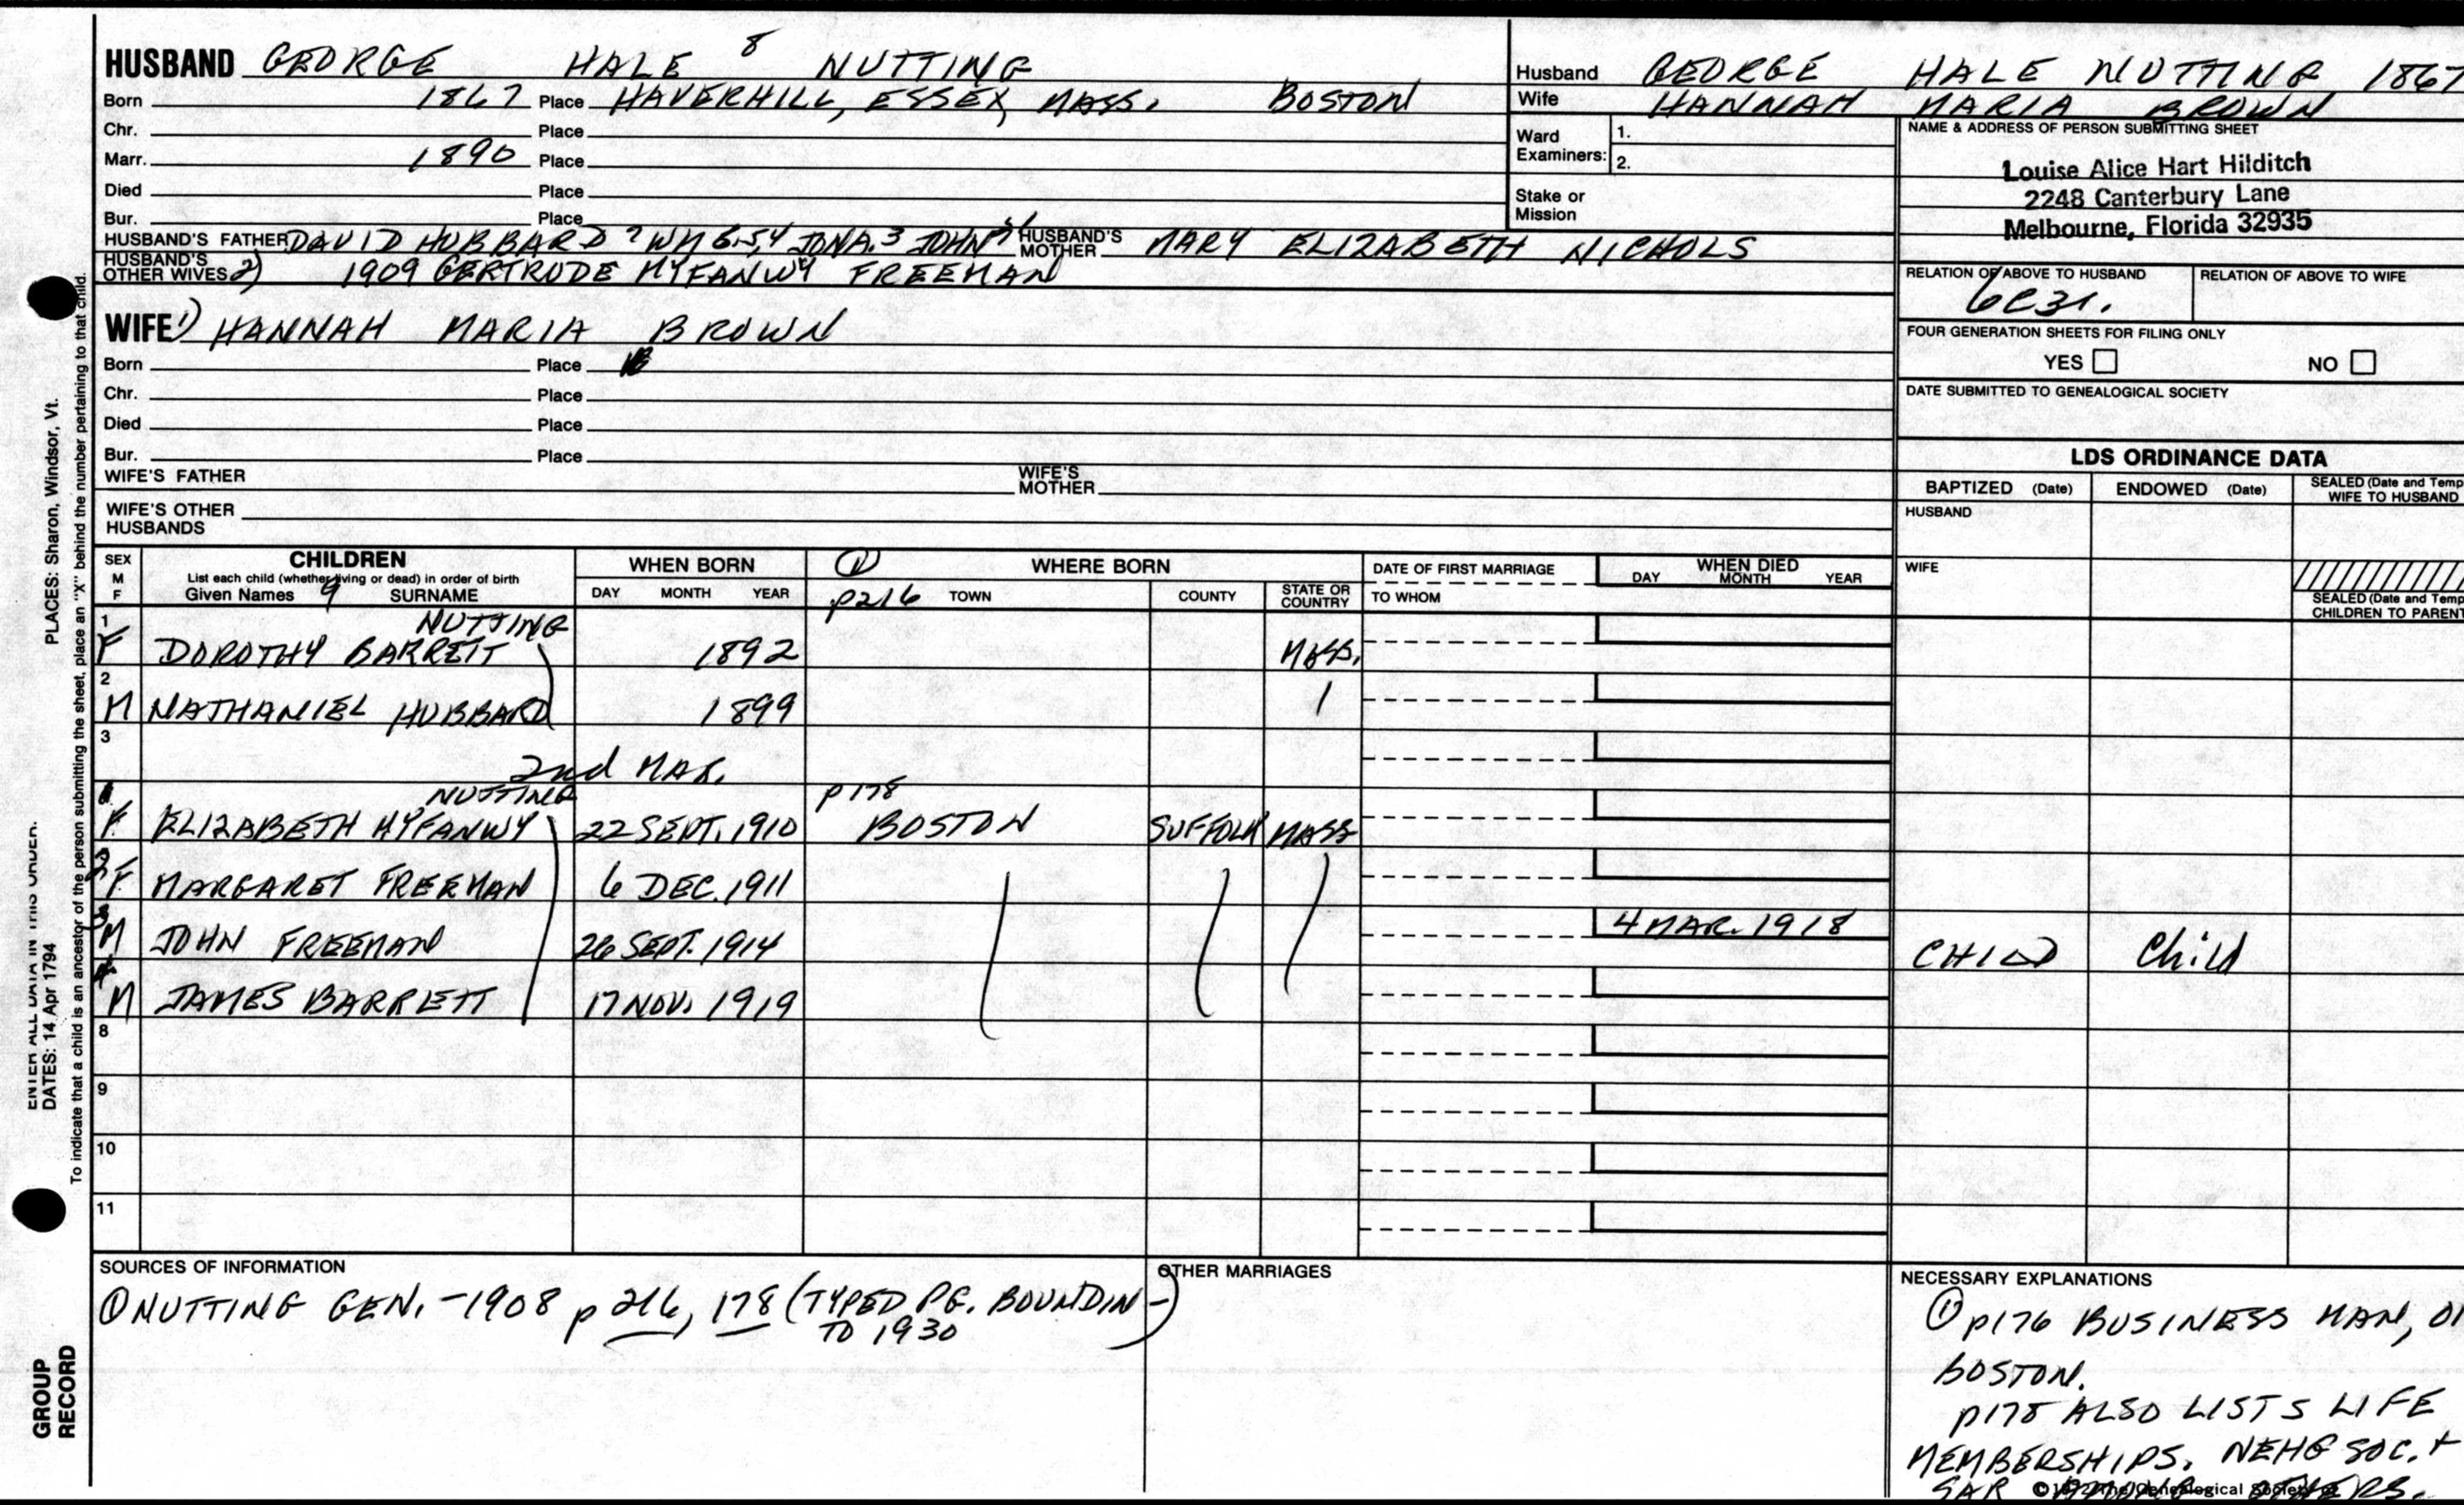 HUSBAND GEORGE HALE 8 NUTTING
Born 1867 Place HAVERHILL, ESSEX, MASS. BOSTON
Chr. Place
Marr. 1890 Place
Died Place
Bur. Place
HUSBAND'S FATHER DAVID HUBBARD 7 WM 6.5.4 JONA.3 JOHN HUSBAND'S MOTHER MARY ELIZABETH NICHOLS
HUSBAND'S OTHER WIVES 2) 1909 GERTRUDE MYFANWY FREEMAN
WIFE 1) HANNAH MARIA BROWN
Born Place
Chr. Place
Died Place
Bur. Place
WIFE'S FATHER WIFE'S MOTHER
WIFE'S OTHER HUSBANDS
Husband GEORGE HALE NUTTING 1867
Wife HANNAH MARIA BROWN
Ward Examiners: 1.
2.
Stake or Mission
NAME & ADDRESS OF PERSON SUBMITTING SHEET
Louise Alice Hart Hilditch
2248 Canterbury Lane
Melbourne, Florida 32935
RELATION OF ABOVE TO HUSBAND RELATION OF ABOVE TO WIFE
6C3r.
FOUR GENERATION SHEETS FOR FILING ONLY
YES NO
DATE SUBMITTED TO GENEALOGICAL SOCIETY
LDS ORDINANCE DATA
BAPTIZED (Date) ENDOWED (Date) SEALED (Date and Temp
WIFE TO HUSBAND
HUSBAND
WIFE
SEALED (Date and Temp
CHILDREN TO PARENT
SEX M F CHILDREN WHEN BORN ① WHERE BORN DATE OF FIRST MARRIAGE WHEN DIED
List each child (whether living or dead) in order of birth
Given Names 9 SURNAME DAY MONTH YEAR p216 TOWN COUNTY STATE OR COUNTRY TO WHOM DAY MONTH YEAR
1 NUTTING
F DOROTHY BARRETT 1892 MASS.
2
M NATHANIEL HUBBARD 1899
3
2nd MAR.
NUTTING p178
F ELIZABETH MYFANWY 22 SEPT. 1910 BOSTON SUFFOLK MASS
2
F MARGARET FREEMAN 6 DEC. 1911
3
M JOHN FREEMAN 26 SEPT. 1914 4 MAR. 1918 CHILD Child
4
M JAMES BARRETT 17 NOV. 1919
8
9
10
11
SOURCES OF INFORMATION
① NUTTING GEN. - 1908 p 216, 178 (TYPED PG. BOUND IN -
TO 1930)
OTHER MARRIAGES
NECESSARY EXPLANATIONS
① p176 BUSINESS MAN, OF
BOSTON.
p178 ALSO LISTS LIFE
MEMBERSHIPS. NEHG SOC. +
SAR OTHERS.
Genealogical
PLACES: Sharon, Windsor, Vt.
To indicate that a child is an ancestor of the person submitting the sheet, place an "X" behind the number pertaining to that child.
ENTER ALL DATA IN THIS ORDER:
DATES: 14 Apr 1794
GROUP
RECORD